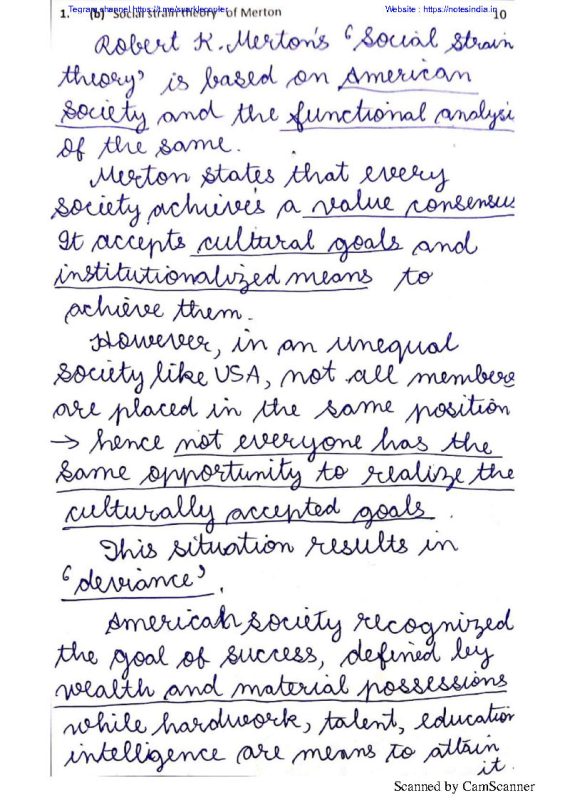 Tegram channel https://t.me/sparklecopier Website : https://notesindia.in
1. (b) 'Social strain theory' of Merton 10
Robert K. Merton's 'Social Strain
theory' is based on American
society and the functional analysi
of the same.
Merton states that every
society achieves a value consensus
It accepts cultural goals and
institutionalized means to
achieve them.
However, in an unequal
society like USA, not all members
are placed in the same position
→ hence not everyone has the
same opportunity to realize the
culturally accepted goals.
This situation results in
'deviance'.
American society recognized
the goal of success, defined by
wealth and material possessions
while hardwork, talent, education
intelligence are means to attain
it.
Scanned by CamScanner